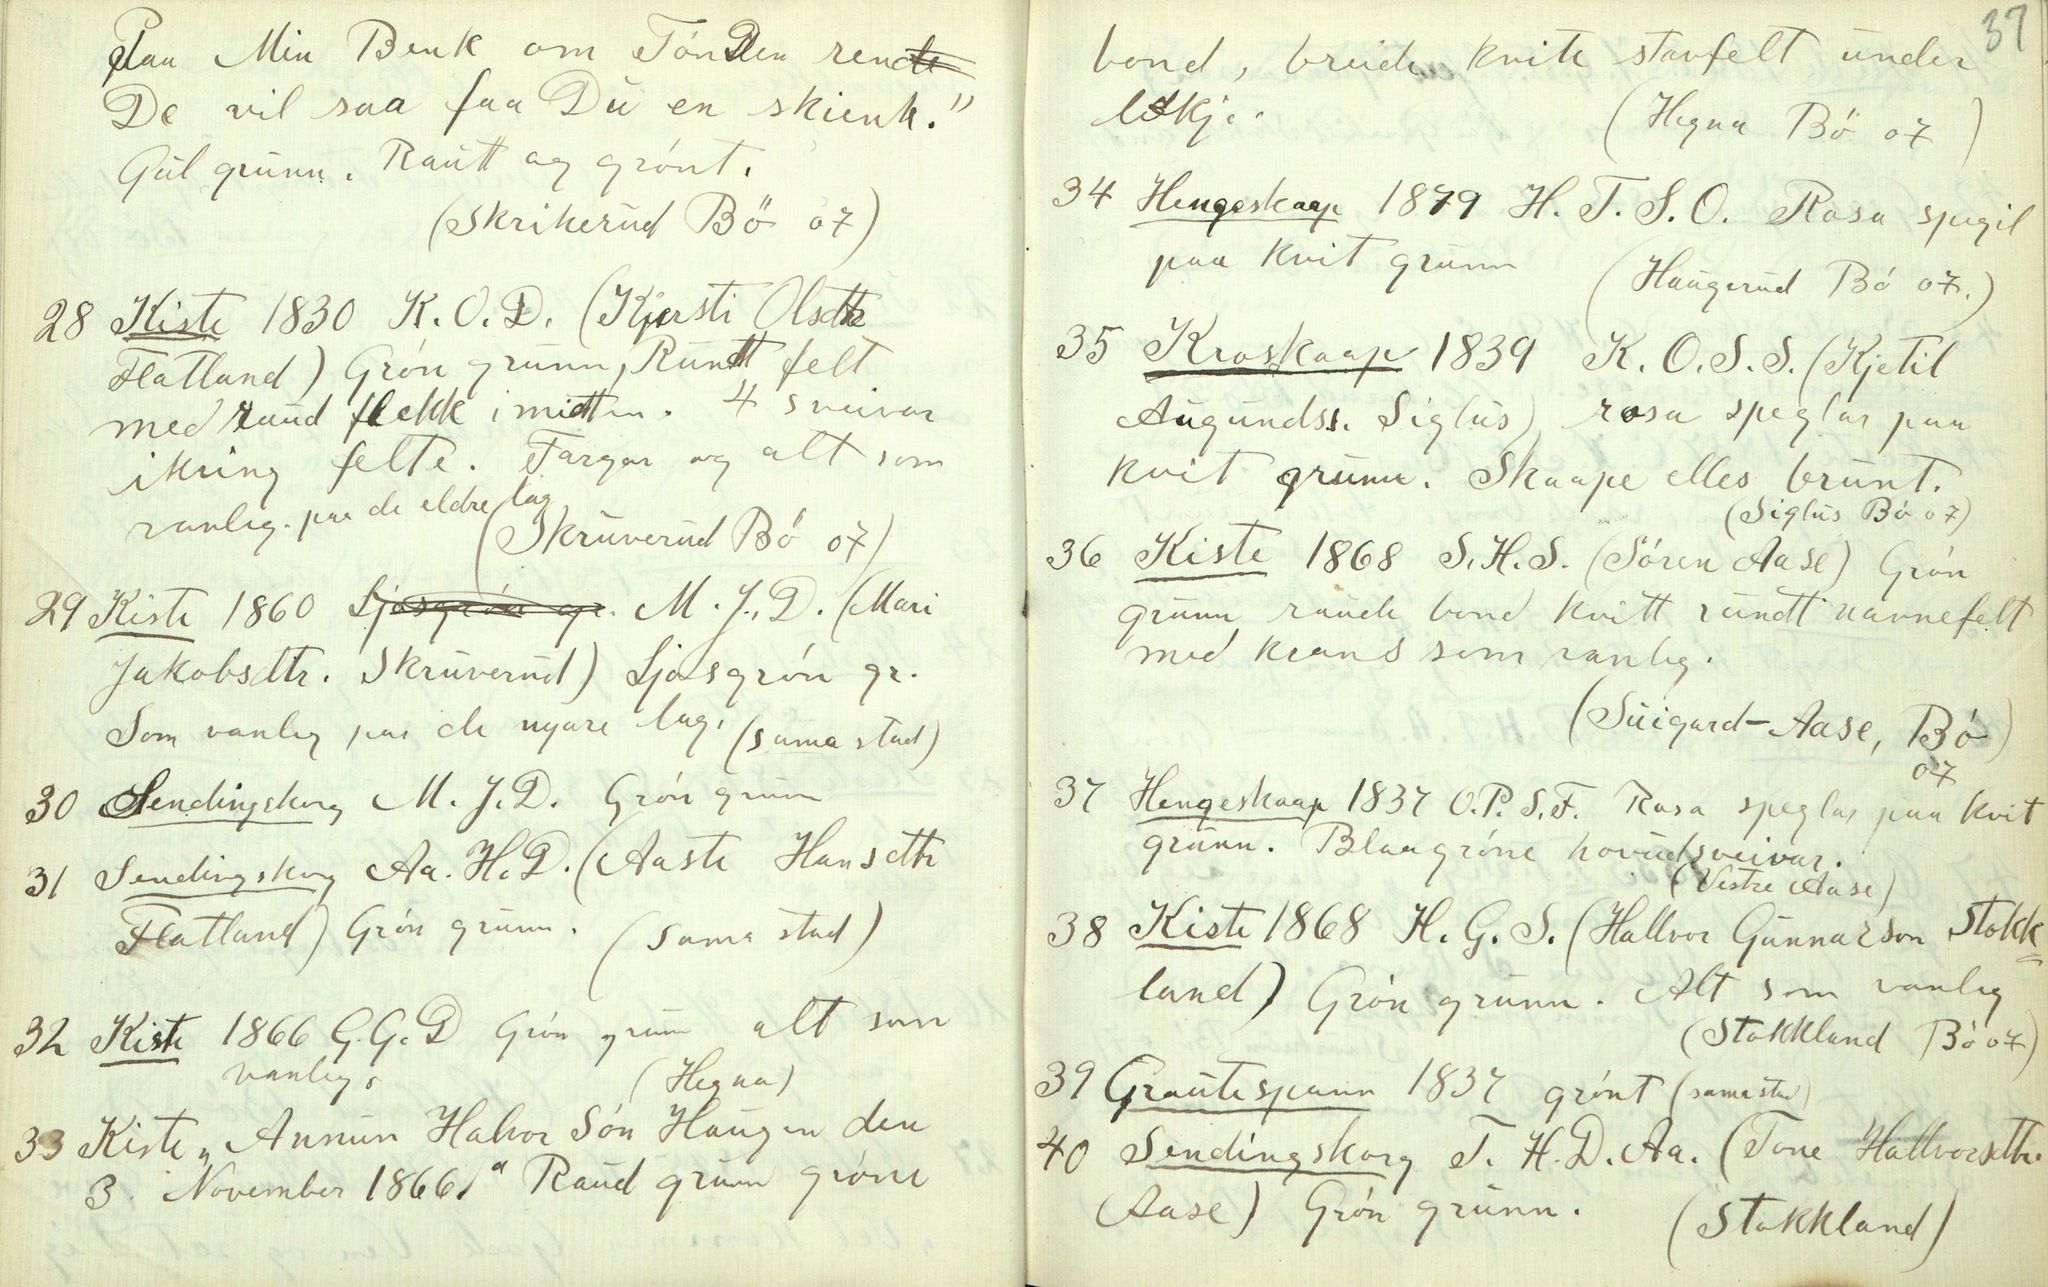 Paa Min Benk om TönDen rende
De vil saa faa Du en skienk."
Gul grunn. Rautt og grónt.
(Skrikerud Bö 07)
28 Kiste 1830 K.O.D. (Kjersti Olsdtr
Flatland) Grón grunn, Rundt felt
med raud flekk i midten. 4 sveivar
ikring felte. Fargar og alt som
vanleg. paa de eldre lag
(Skruverud Bó 07)
29 Kiste 1860 Ljosgrón gr. M.J.D. (Mari
Jakobsdtr. Skruverud) Ljosgrón gr.
Som vanleg paa de nyare lag. (sama stad)
30 Sendingskorg M.J.D. Grón grunn
31 Sendingskorg Aa.H.D. (Aaste Hansdtr
Flatland) Grón grunn. (sama stad)
32 Kiste 1866 G.G.D Grón grunn alt som
vanleg. (Hegna)
33 Kiste „Annun Halvor Són Haugen den
3. November 1866" Raud grunn gróne
37
bond, breide kvite stavfelt under
lokje. (Hegna Bö 07)
34 Hengeskaap 1879 H.T.S.O. Rosa spegil
paa kvit grunn
(Haugerud Bó 07.)
35 Kroskaap 1839 K.O.S.S. (Kjetil
Augundss. Siglus) rosa speglar paa
kvit grunn. Skaape elles brunt.
(Siglus Bó 07)
36 Kiste 1868 S.H.S. (Sóren Aase) Grón
grunn raude bond kvitt rundt navnefelt
med krans som vanleg.
(Suigard-Aase, Bó
07)
37 Hengeskaap 1837 O.P.S.F. Rosa speglar paa kvit
grunn. Blaagróne hovudsveivar.
(Vestre Aase)
38 Kiste 1868 H.G.S. (Hallvor Gunnarson Stokk=
land) Grón grunn. Alt som vanleg
(Stokkland Bó 07)
39 Grautespann 1837 grónt (sama stad)
40 Sendingskorg T.H.D.Aa. (Tone Hallvorsdtr.
Aase) Grón grunn. (Stokkland)